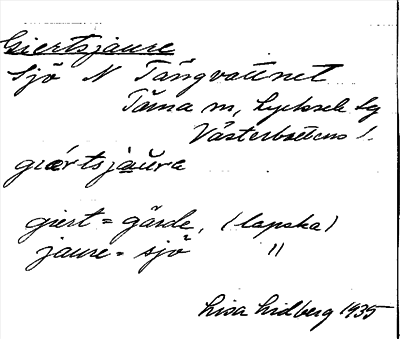 Giertsjaure
Sjö N Tängvattnet
Tärna sn, Lycksele lg
Västerbottens l.
giertsjaura
giert = gärde, (lapska)
jaure = sjö "
Lisa Lidberg 1935